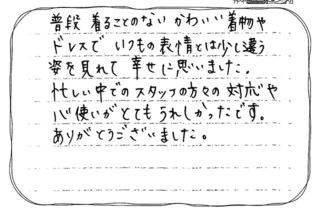 普段 着ることのない かわいい 着物や
ドレスで いつもの 表情とは 少し違う
姿を見れて 幸せに思いました。
忙しい中でのスタッフの方々の 対応や
心使いがとてもうれしかったです。
ありがとうございました。